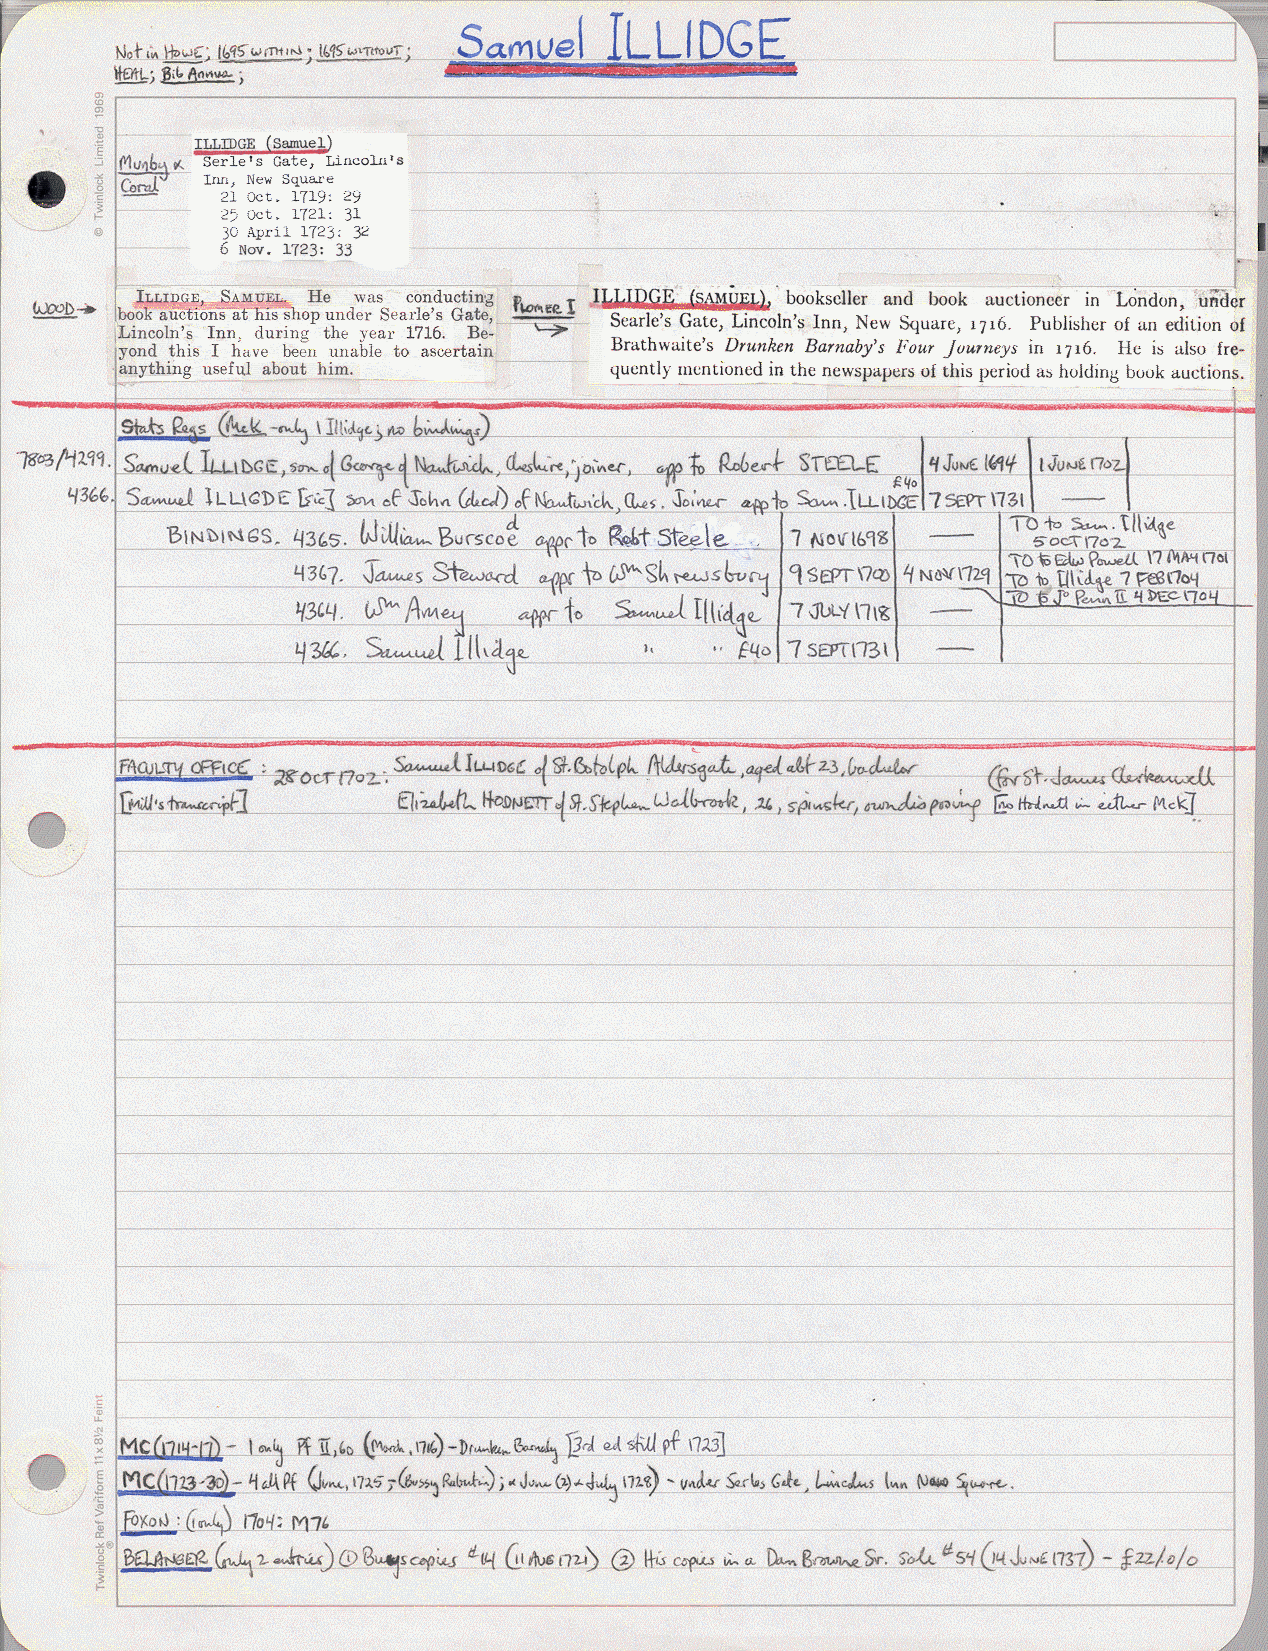 Samuel ILLIDGE
Not in HOWE; 1695 WITHIN; 1695 WITHOUT;
HEAL; Bib Annua;
© Twinlock Limited 1969
Munby &
Coral
ILLIDGE (Samuel)
Serle's Gate, Lincoln's
Inn, New Square
21 Oct. 1719: 29
25 Oct. 1721: 31
30 April 1723: 32
6 Nov. 1723: 33
WOOD →
ILLIDGE, SAMUEL. He was conducting
book auctions at his shop under Searle's Gate,
Lincoln's Inn, during the year 1716. Be-
yond this I have been unable to ascertain
anything useful about him.
PLOMER I
ILLIDGE (SAMUEL), bookseller and book auctioneer in London, under
Searle's Gate, Lincoln's Inn, New Square, 1716. Publisher of an edition of
Brathwaite's Drunken Barnaby's Four Journeys in 1716. He is also fre-
quently mentioned in the newspapers of this period as holding book auctions.
Stats Regs (McK - only 1 Illidge; no bindings)
7803/4299. Samuel ILLIDGE, son of George of Nantwich, Cheshire, joiner, app to Robert STEELE 4 JUNE 1694 1 JUNE 1702
4366. Samuel ILLIGDE [sic] son of John (decd) of Nantwich, Ches. Joiner app to Sam. ILLIDGE £40 7 SEPT 1731 —
BINDINGS. 4365. William Burscoed appr to Robt Steele 7 NOV 1698 — TO to Sam. Illidge
5 OCT 1702
4367. James Steward appr to Wm Shrewsbury 9 SEPT 1700 4 NOV 1729 TO to Edw Powell 17 MAY 1701
TO to Illidge 7 FEB 1704
TO to Jo Penn II 4 DEC 1704
4364. Wm Amey appr to Samuel Illidge 7 JULY 1718 —
4366. Samuel Illidge " " £40 7 SEPT 1731 —
FACULTY OFFICE: 28 OCT 1702: Samuel ILLIDGE of St. Botolph Aldersgate, aged abt 23, bachelor (for St. James Clerkenwell
[Mill's transcript] Elizabeth HODNETT of St. Stephen Walbrook, 26, spinster, own disposing [no Hodnett in either McK]
MC (1714-17) - 1 only Pf II, 60 (March, 1716) - Drunken Barnaby [3rd ed still pf 1723]
MC (1723-30) - 4 all Pf (June, 1725 - (Bussy Rabutin); & June (2) & July 1728) - under Serles Gate, Lincolns Inn New Square.
FOXON: (1 only) 1704: M76
BELANGER (only 2 entries) ① Buys copies #14 (11 AUG 1721) ② His copies in a Dan Browne Sr. sale #54 (14 JUNE 1737) - £22/0/0
Twinlock Ref Variform 11 x 8½ Feint